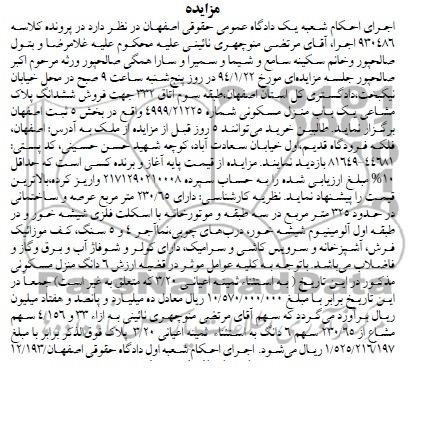 مزایده
اجرای احکام شعبه یک دادگاه عمومی حقوقی اصفهان در نظر دارد در پرونده کلاسه
۹۳۰۴۸۶ اجرا، آقای مرتضی منوچهری نائینی علیه محکوم علیه غلامرضا و بتول
صالحپور وخانم سکینه سامع و شیما و سمیرا و سارا همگی صالحپور ورثه مرحوم اکبر
صالحپور جلسه مزایده‌ای مورخ ۹۴/۱/۲۲ در روز پنج‌شنبه ساعت ۹ صبح در محل خیابان
نیکبخت دادگستری کل استان اصفهان طبقه سوم اتاق ۳۳۲ جهت فروش ششدانگ پلاک
مشاعی یک باب منزل مسکونی شماره ۴۹۹۹/۲۱۲۲۵ واقع در بخش ۵ ثبت اصفهان
برگزار نماید. طالبین خرید می‌توانند ۵ روز قبل از مزایده از ملک به آدرس: اصفهان،
فلکه فرودگاه قدیم، اول خیابان سعادت آباد، کوچه شهید حسن حسینی، کد پستی:
۸۱۶۴۹-۴۴۶۸۱ بازدید نمایند. مزایده از قیمت پایه آغاز و برنده کسی است که حداقل
۱۰% مبلغ ارزیابی شده را به حساب سپرده ۲۱۷۱۲۹۰۲۱۰۰۰۸ واریز کرده، بالاترین
قیمت را پیشنهاد نماید. نظریه کارشناسی: دارای ۲۳۰/۶۵ متر مربع عرصه و ساختمانی
در حدود ۳۲۵ متر مربع در سه طبقه و موتورخانه با اسکلت فلزی شیشه خور و در
طبقه اول آلومینیوم شیشه خور، درب‌های چوبی، نما آجر ۴ و ۵ سنگ، کف موزائیک
فرش، آشپزخانه و سرویس کاشی و سرامیک، دارای کولر و شوفاژ آب و برق و گاز و
فاضلاب می‌باشد. باتوجه به کلیه عوامل موثر در قضیه ارزش ۶ دانگ منزل مسکونی
مذکور در این تاریخ ( به استثناء ثمنیه اعیانی ۳/۲۰ که متعلق به غیر است) جمعا در
این تاریخ برابر با مبلغ ۱۰/۵۷۰/۰۰۰/۰۰۰ ریال معادل ده میلیارد و پانصد و هفتاد میلیون
ریال برآورد می‌گردد که سهم آقای مرتضی منوچهری نائینی به ازاء ۳۳ و ۴/۱۵۶ سهم
مشاع از ۲۳۰/۶۵ سهم ۶ دانگ به استثناء ثمنیه اعیانی ۳/۲۰ پلاک فوق‌الذکر برابر با مبلغ
۱/۵۲۵/۲۱۶/۱۹۷ ریال می‌شود. اجرای احکام شعبه اول دادگاه حقوقی اصفهان/۱۲/۱۹۳